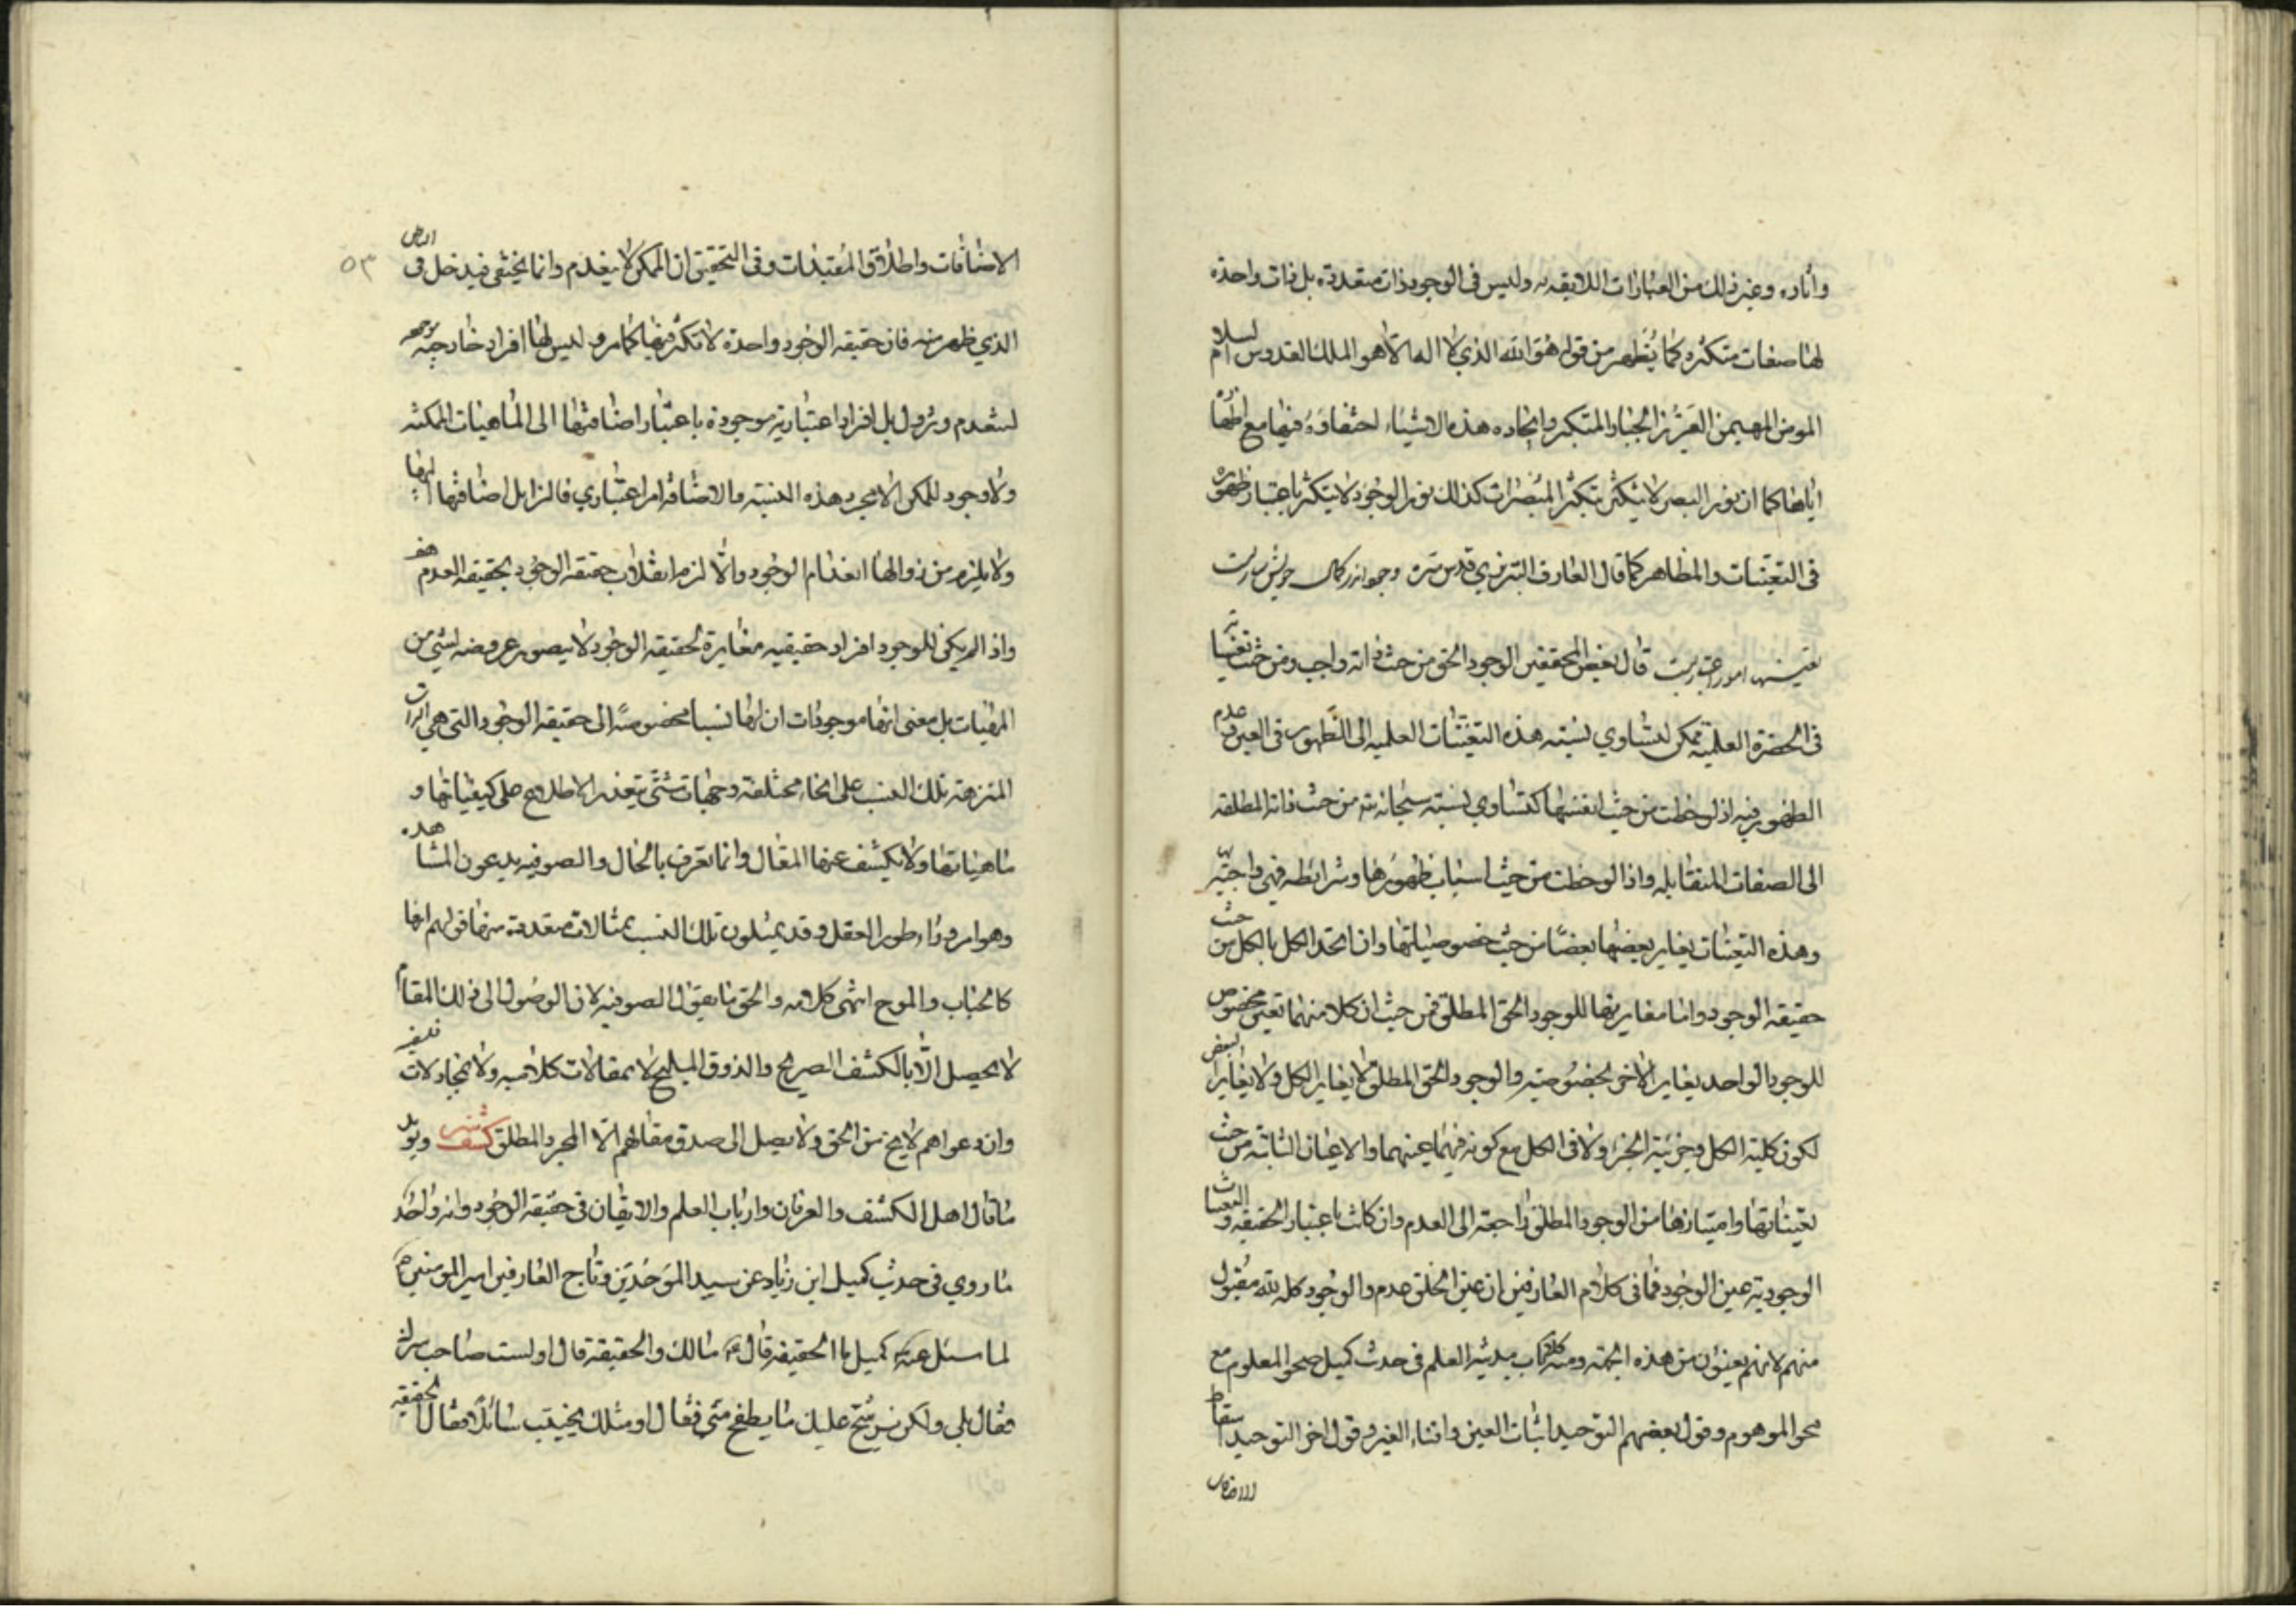 وآثاره وغير ذلك من العبارات اللايقه به وليس فى الوجود ذات متعددة بل ذات واحدة
لها صفات متكثره كما يظهر من قوله هو الله الذي لا اله الا هو الملك القدوس السلام
المومن المهيمن العزيز الجبار المتكبر وايجاده هذه الاشياء اختفاوه فيها مع اظهاره
اياها كما ان نور البصر لا يتكثر بتكثر المبصرات كذلك نور الوجود لا يتكثر باعتبار ظهوره
فى التعينات والمظاهر كما قال العارف التبريزي قدس سره وجود اندر كمال خويش ساريست
تعينها امور اعتباريست قال بعض المحققين الوجود الحق من حيث ذاته واجب ومن حيث تعيناته
فى الحضرة العلمية ممكن لتساوي نسبته هذه التعينات العلميه الى الظهور فى العين وعدم
الظهور فيه اذ لوحظت من حيث انفسها كتساوي نسبته سبحانه من حيث ذاته المطلقه
الى الصفات المتقابله واذا لوحظت من حيث اسباب ظهورها وشرائطه فهى واجبه
وهذه التعينات يغاير بعضها بعضا من حيث خصوصياتها وان اتحد الكل بالكل من حيث
حقيقه الوجود واما مغايرتها للوجود الحق المطلق فمن حيث ان كلا منهما تعين مخصوص
للوجود الواحد يغاير الاخر بخصوصيته والوجود الحق المطلق لا يغاير الكل ولا يغاير البعض
لكون كلية الكل وجزئية الجزء ولا فى الكل مع كونه فيهما عينهما والاعيان الثابتة من حيث
تعيناتها وامتيازها من الوجود المطلق راجعة الى العدم وان كانت باعتبار الحقيقه والتعينات
الوجودية عين الوجود فما فى كلام العارفين ان عين الخلق عدم والوجود كله لله مقبول
منهم لانهم يعينون من هذه الجهة ومنه كلام باب مدينه العلم فى حديث كميل صحو المعلوم مع
محو الموهوم وقول بعضهم التوحيد اثبات العين وافناء الغير وقول اخر التوحيد اسقاط
الاضافات
٥٣
الاضافات واطلاق المقيدات وفى التحقيق ان الممكن لا ينعدم وانما يختفى فيدخل فى الباطن
الذي ظهر منه فان حقيقه الوجود واحدة لا تكثر فيها كما مر وليس لها افراد خارجية
لتنعدم وتزول بل افراد اعتبارية موجودة باعتبار اضافتها الى الماهيات الممكنه
ولا وجود للممكن الا بمجرد هذه النسبة والاضافة امر اعتباري فالزايل اضافتها اليها
ولا يلزم من زوالها انعدام الوجود والا لزم انقلاب حقيقه الوجود بحقيقه العدم هف
واذا لم يكن للوجود افراد حقيقيه مغايرة لحقيقه الوجود لا يتصور عروضه لشئ من
المهيات بل معنى انها موجودات ان لها نسبا مخصوصة الى حقيقه الوجود التى هى الذات
المنزهة بتلك النسب على انحاء مختلفه وجهات شتى يتعذر الاطلاع على كيفياتها و
ماهياتها ولا يكشف عنها المقال وانما تعرف بالحال والصوفيه يدعون المشاهده
وهو امر وراء طور العقل وقد يمثلون تلك النسب بمثالات متعددة منها قولهم انها
كالحباب والموج انتهى كلامه والحق ما يقول الصوفيه لان الوصول الى ذلك المقام
لا يحصل الا بالكشف الصريح والذوق المليح لا بمقالات كلاميه ولا بمجادلات
وان دعواهم لا يخ من الحق ولا يصل الى صدق مقالهم الا المجرد المطلق كشف ويويد
ما قال اهل الكشف والعرفان وارباب العلم والايقان فى حقيقه الوجود وانه واحد
ما روي فى حديث كميل ابن زياد عن سيد الموحدين وتاج العارفين امير المومنين ع
لما سئل عنه كميل ما الحقيقه قال ع مالك والحقيقة قال اولست صاحب سرك
فقال بلى ولكن يرشح عليك ما يطفح منى فقال او مثلك يخيب سائلا فقال الحقيقه